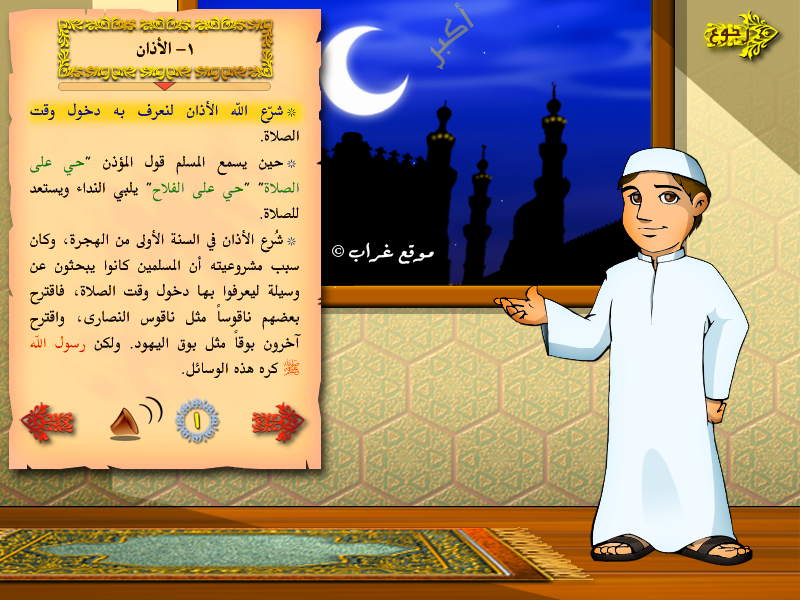 ١- الأذان
شرّع الله الأذان لنعرف به دخول وقت
الصلاة.
حين يسمع المسلم قول المؤذن "حي على
الصلاة" "حي على الفلاح" يلبي النداء ويستعد
للصلاة.
شُرع الأذان في السنة الأولى من الهجرة، وكان
سبب مشروعيته أن المسلمين كانوا يبحثون عن
وسيلة ليعرفوا بها دخول وقت الصلاة، فاقترح
بعضهم ناقوساً مثل ناقوس النصارى، واقترح
آخرون بوقاً مثل بوق اليهود. ولكن رسول الله
ﷺ كره هذه الوسائل.
١
أكبر
موقع غراب ©
رجوع